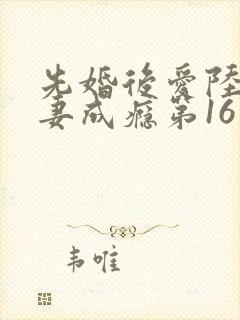 先婚後愛陸
妻成瘾第16
韦唯